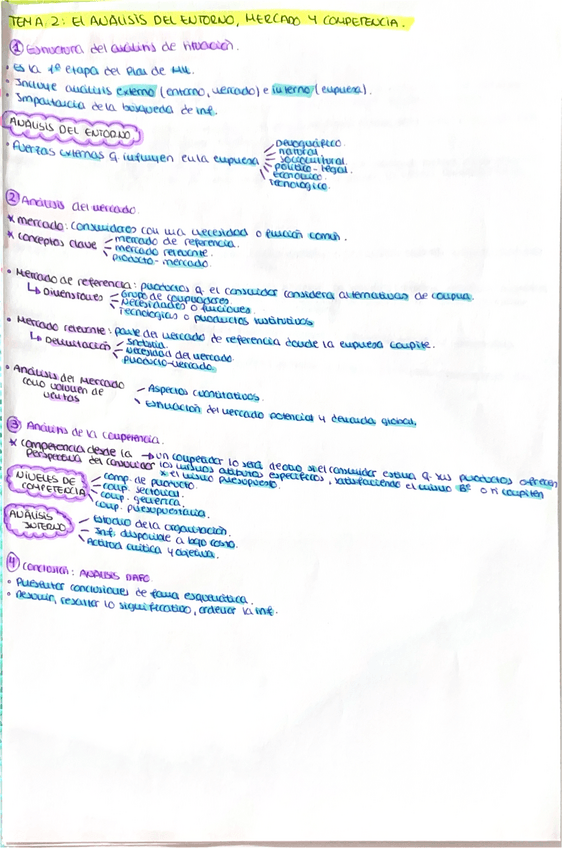 TEMA 2: El ANÁLISIS DEL ENTORNO, MERCADO Y COMPETENCIA.
① Estructura del análisis de situación.
• Es la 1ª etapa del Plan de Mk.
• Incluye análisis externo (entorno, mercado) e interno (empresa).
• Importancia de la búsqueda de inf.
ANÁLISIS DEL ENTORNO
• Fuerzas externas q influyen en la empresa
Demográfico.
natural
sociocultural.
político-legal.
económico.
tecnológico.
② Análisis del mercado.
* mercado: consumidores con una necesidad o función común.
* conceptos clave
mercado de referencia.
mercado relevante.
producto-mercado.
• Mercado de referencia: productos q el consumidor considera alternativas de compra.
↳ Dimensiones
Grupo de compradores
Necesidades o funciones.
Tecnologías o productos sustitutivos
• Mercado relevante: parte del mercado de referencia donde la empresa compite.
↳ Delimitación
Industria.
necesidad del mercado
producto-mercado.
• Análisis del Mercado como volumen de ventas
Aspectos cuantitativos.
Estimación del mercado potencial y demanda global.
③ Análisis de la competencia.
* competencia desde la perspectiva del consumidor
→ un competidor lo será de otro si el consumidor estima q sus productos ofrecen
los mismos atributos específicos, satisfaciendo el mismo Bº o si compiten
x el mismo presupuesto.
NIVELES DE COMPETENCIA
comp. de producto
comp. sectorial.
comp. genérica.
comp. presupuestaria.
ANÁLISIS INTERNO
Estudio de la organización.
Inf. disponible a bajo coste.
Actitud crítica y objetiva.
④ Conclusión: ANÁLISIS DAFO
• Presentar conclusiones de forma esquemática.
• Resumir, resaltar lo significativo, ordenar la inf.